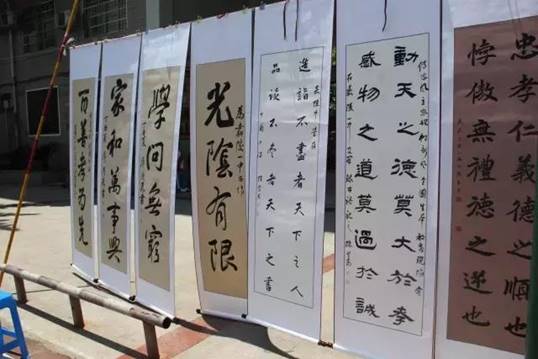 忠孝仁義德之順也
悖傲無禮德之逆也
動天之德莫大於孝
感物之道莫過於誠
造詣不盡者天下之人
品讀不盡者天下之書
光陰有限
學問無窮
家和萬事興
百善孝为先